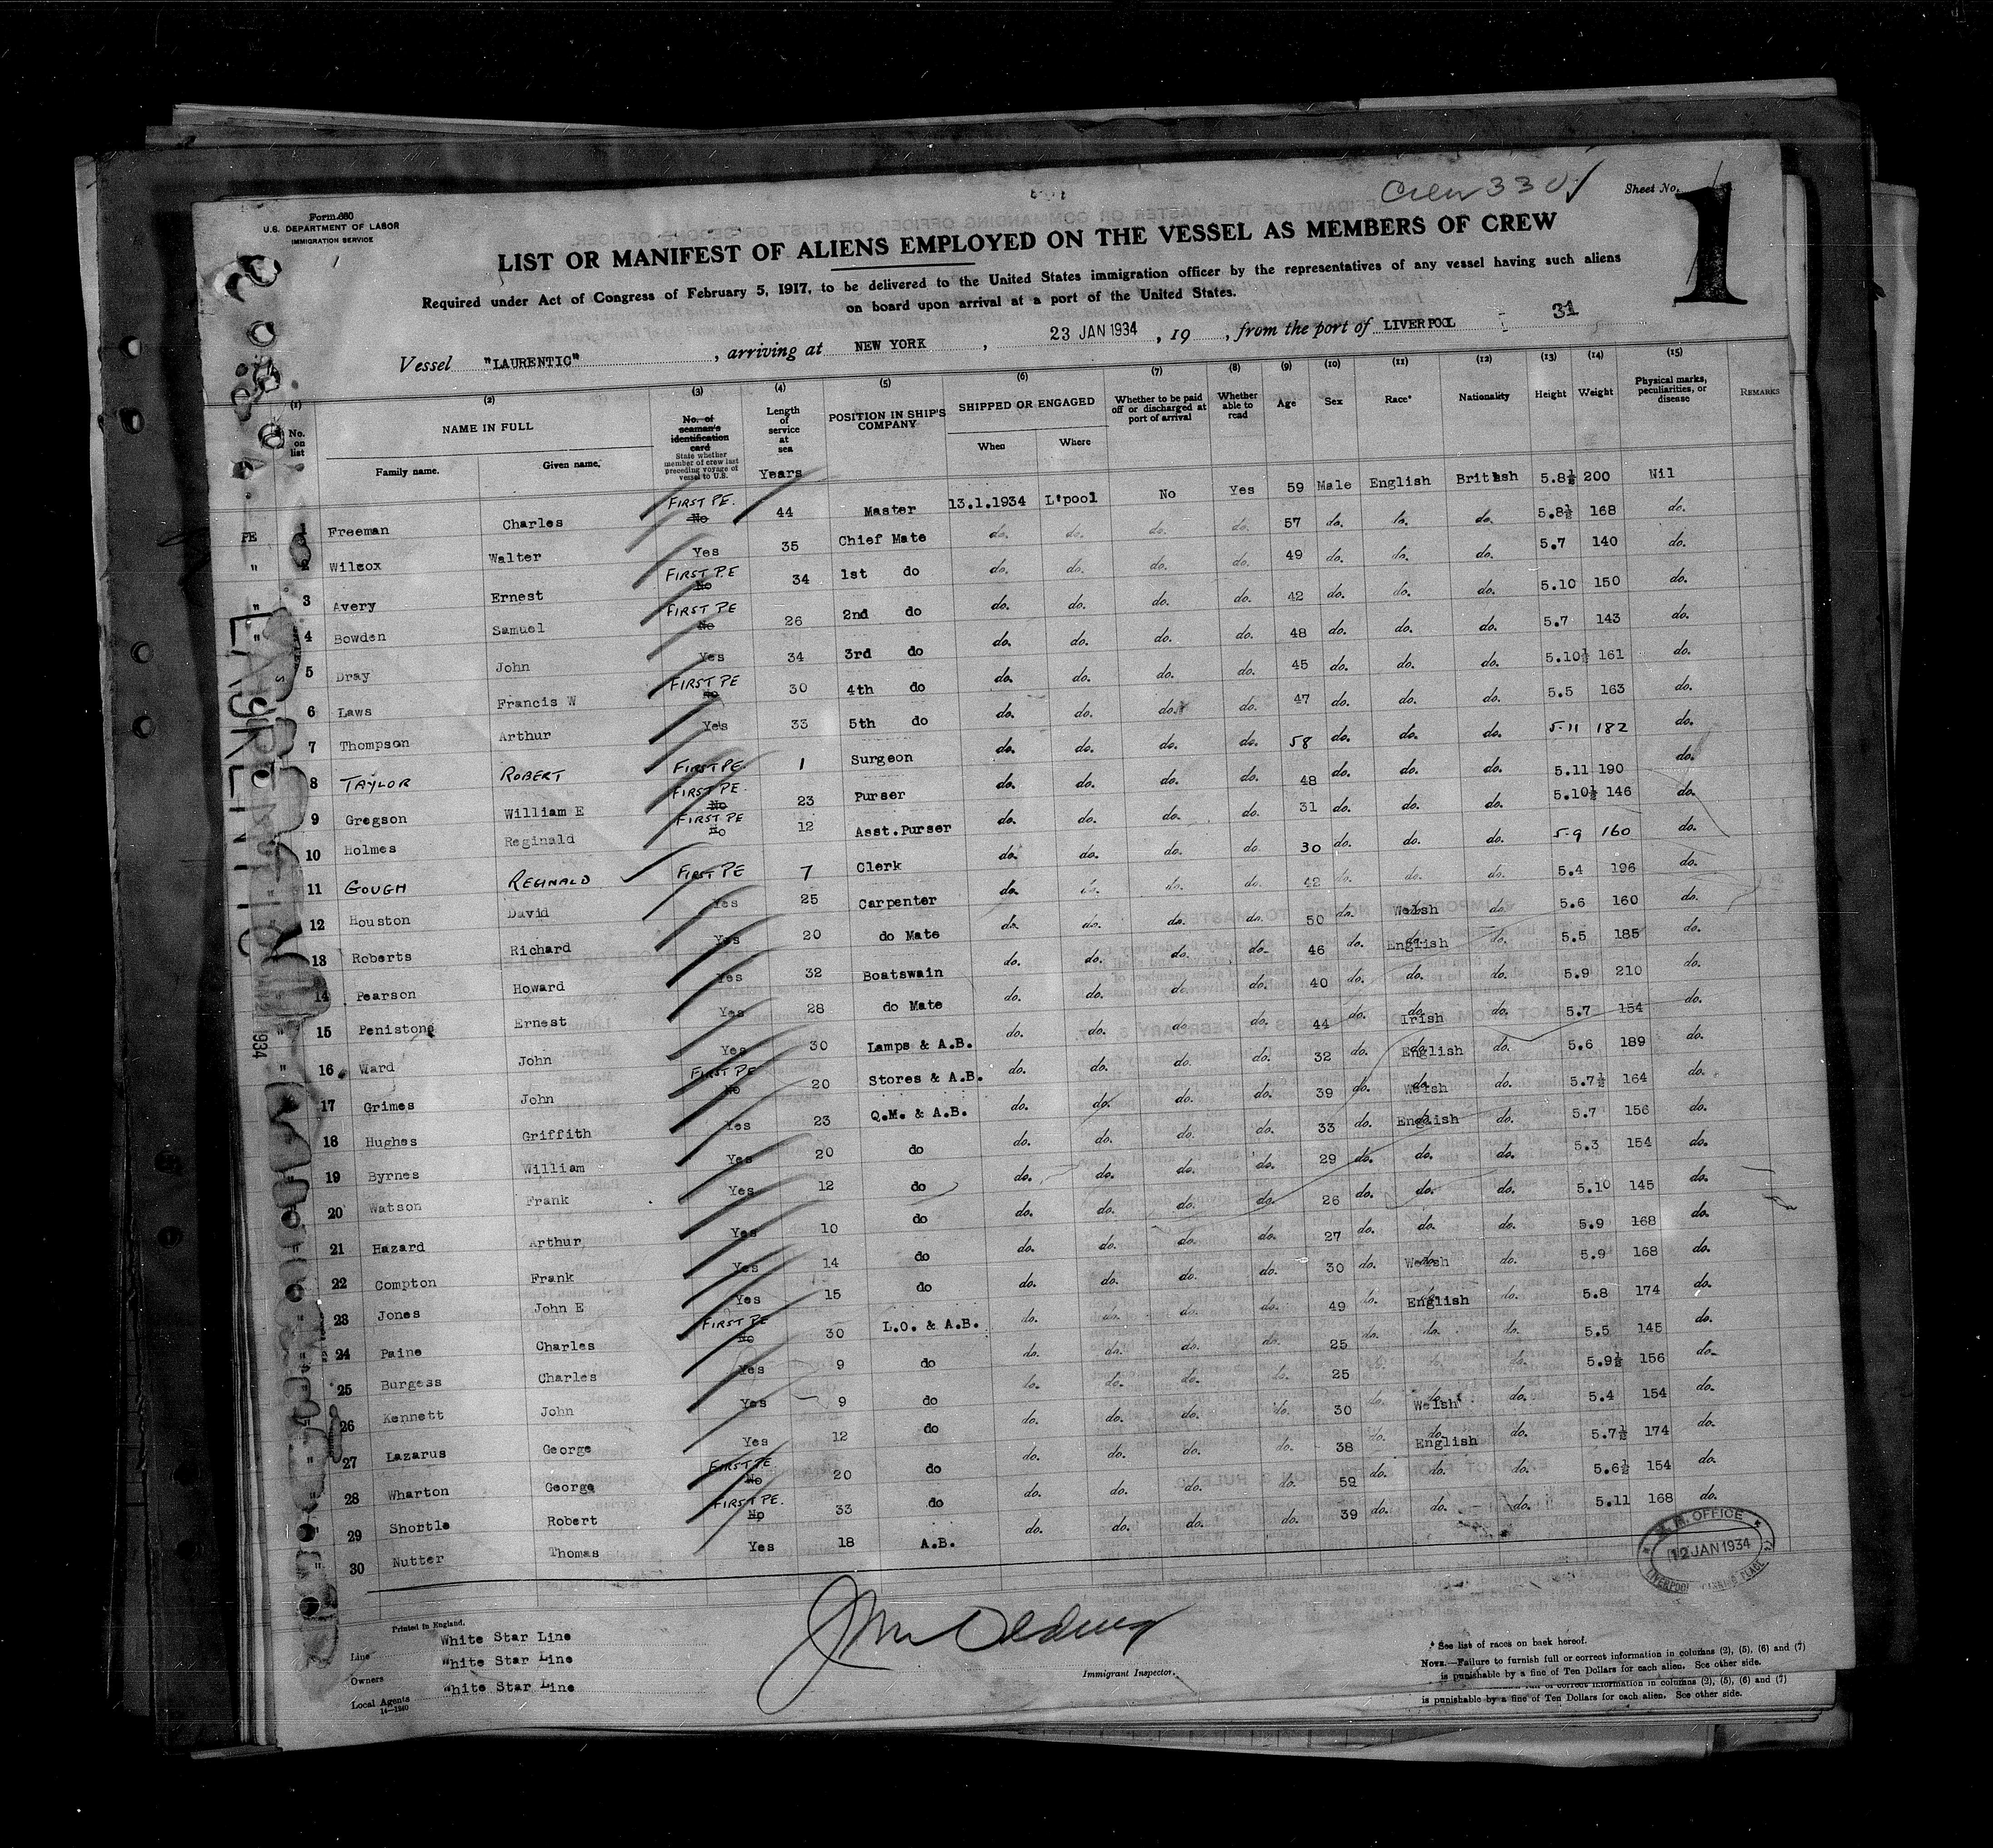 Crew 330 ✓
Sheet No. 1
Form 680
U.S. DEPARTMENT OF LABOR
IMMIGRATION SERVICE
LIST OR MANIFEST OF ALIENS EMPLOYED ON THE VESSEL AS MEMBERS OF CREW
Required under Act of Congress of February 5, 1917, to be delivered to the United States immigration officer by the representatives of any vessel having such aliens
on board upon arrival at a port of the United States.
Vessel "LAURENTIC", arriving at NEW YORK, 23 JAN 1934, 19 , from the port of LIVERPOOL 31
(1) (2) (3) (4) (5) (6) (7) (8) (9) (10) (11) (12) (13) (14) (15)
No. on list NAME IN FULL Family name. Given name. No. of seaman's identification card State whether member of crew last preceding voyage of vessel to U.S. Length of service at sea Years POSITION IN SHIP'S COMPANY SHIPPED OR ENGAGED When Where Whether to be paid off or discharged at port of arrival Whether able to read Age Sex Race* Nationality Height Weight Physical marks, peculiarities, or disease REMARKS
PE 1 Freeman Charles FIRST PE. No 44 Master 13.1.1934 L'pool No Yes 59 Male English British 5.8½ 200 Nil
" 2 Wilcox Walter Yes 35 Chief Mate do. do. do. do. 57 do. do. do. 5.8½ 168 do.
" 3 Avery Ernest FIRST P.E No 34 1st do do. do. do. do. 49 do. do. do. 5.7 140 do.
" 4 Bowden Samuel FIRST PE No 26 2nd do do. do. do. do. 42 do. do. do. 5.10 150 do.
5 Dray John Yes 34 3rd do do. do. do. do. 48 do. do. do. 5.7 143 do.
6 Laws Francis W FIRST PE No 30 4th do do. do. do. do. 45 do. do. do. 5.10½ 161 do.
7 Thompson Arthur Yes 33 5th do do. do. do. do. 47 do. do. do. 5.5 163 do.
8 TAYLOR ROBERT FIRST PE. 1 Surgeon do. do. do. do. 58 do. do. do. 5-11 182 do.
9 Gregson William E FIRST PE. No 23 Purser do. do. do. do. 48 do. do. do. 5.11 190 do.
10 Holmes Reginald FIRST PE No 12 Asst.Purser do. do. do. do. 31 do. do. do. 5.10½ 146 do.
11 GOUGH REGINALD FIRST PE 7 Clerk do. do. do. do. 30 do. do. do. 5-9 160 do.
12 Houston David Yes 25 Carpenter do. do. do. do. 42 do. do. do. 5.4 196 do.
13 Roberts Richard Yes 20 do Mate do. do. do. do. 50 do. Welsh do. 5.6 160 do.
14 Pearson Howard Yes 32 Boatswain do. do. do. do. 46 do. English do. 5.5 185 do.
15 Penistone Ernest Yes 28 do Mate do. do. do. do. 40 do. do. do. 5.9 210 do.
16 Ward John Yes 30 Lamps & A.B. do. do. do. do. 44 do. Irish do. 5.7 154 do.
17 Grimes John FIRST PE No 20 Stores & A.B. do. do. do. do. 32 do. English do. 5.6 189 do.
18 Hughes Griffith Yes 23 Q.M. & A.B. do. do. do. do. 39 do. Welsh do. 5.7½ 164 do.
19 Byrnes William Yes 20 do do. do. do. do. 33 do. English do. 5.7 156 do.
20 Watson Frank Yes 12 do do. do. do. do. 29 do. do. do. 5.3 154 do.
21 Hazard Arthur Yes 10 do do. do. do. do. 26 do. do. do. 5.10 145 do.
22 Compton Frank Yes 14 do do. do. do. do. 27 do. do. do. 5.9 168 do.
23 Jones John E Yes 15 do do. do. do. do. 30 do. Welsh do. 5.9 168 do.
24 Paine Charles FIRST PE No 30 L.O. & A.B. do. do. do. do. 49 do. English do. 5.8 174 do.
25 Burgess Charles Yes 9 do do. do. do. do. 25 do. do. do. 5.5 145 do.
26 Kennett John Yes 9 do do. do. do. do. 25 do. do. do. 5.9½ 156 do.
27 Lazarus George Yes 12 do do. do. do. do. 30 do. Welsh do. 5.4 154 do.
28 Wharton George FIRST PE No 20 do do. do. do. do. 38 do. English do. 5.7½ 174 do.
29 Shortle Robert FIRST PE. No 33 do do. do. do. do. 59 do. do. do. 5.6½ 154 do.
30 Nutter Thomas Yes 18 A.B. do. do. do. do. 39 do. do. do. 5.11 168 do.
LAURENTIC
1934
M. M. OFFICE
12 JAN 1934
LIVERPOOL CANNING PLACE
Printed in England.
Line White Star Line
Owners White Star Line
Local Agents White Star Line
14—1240
Immigrant Inspector.
* See list of races on back hereof.
NOTE.—Failure to furnish full or correct information in columns (2), (5), (6) and (7)
is punishable by a fine of Ten Dollars for each alien. See other side.
full or correct information in columns (2), (5), (6) and (7)
is punishable by a fine of Ten Dollars for each alien. See other side.